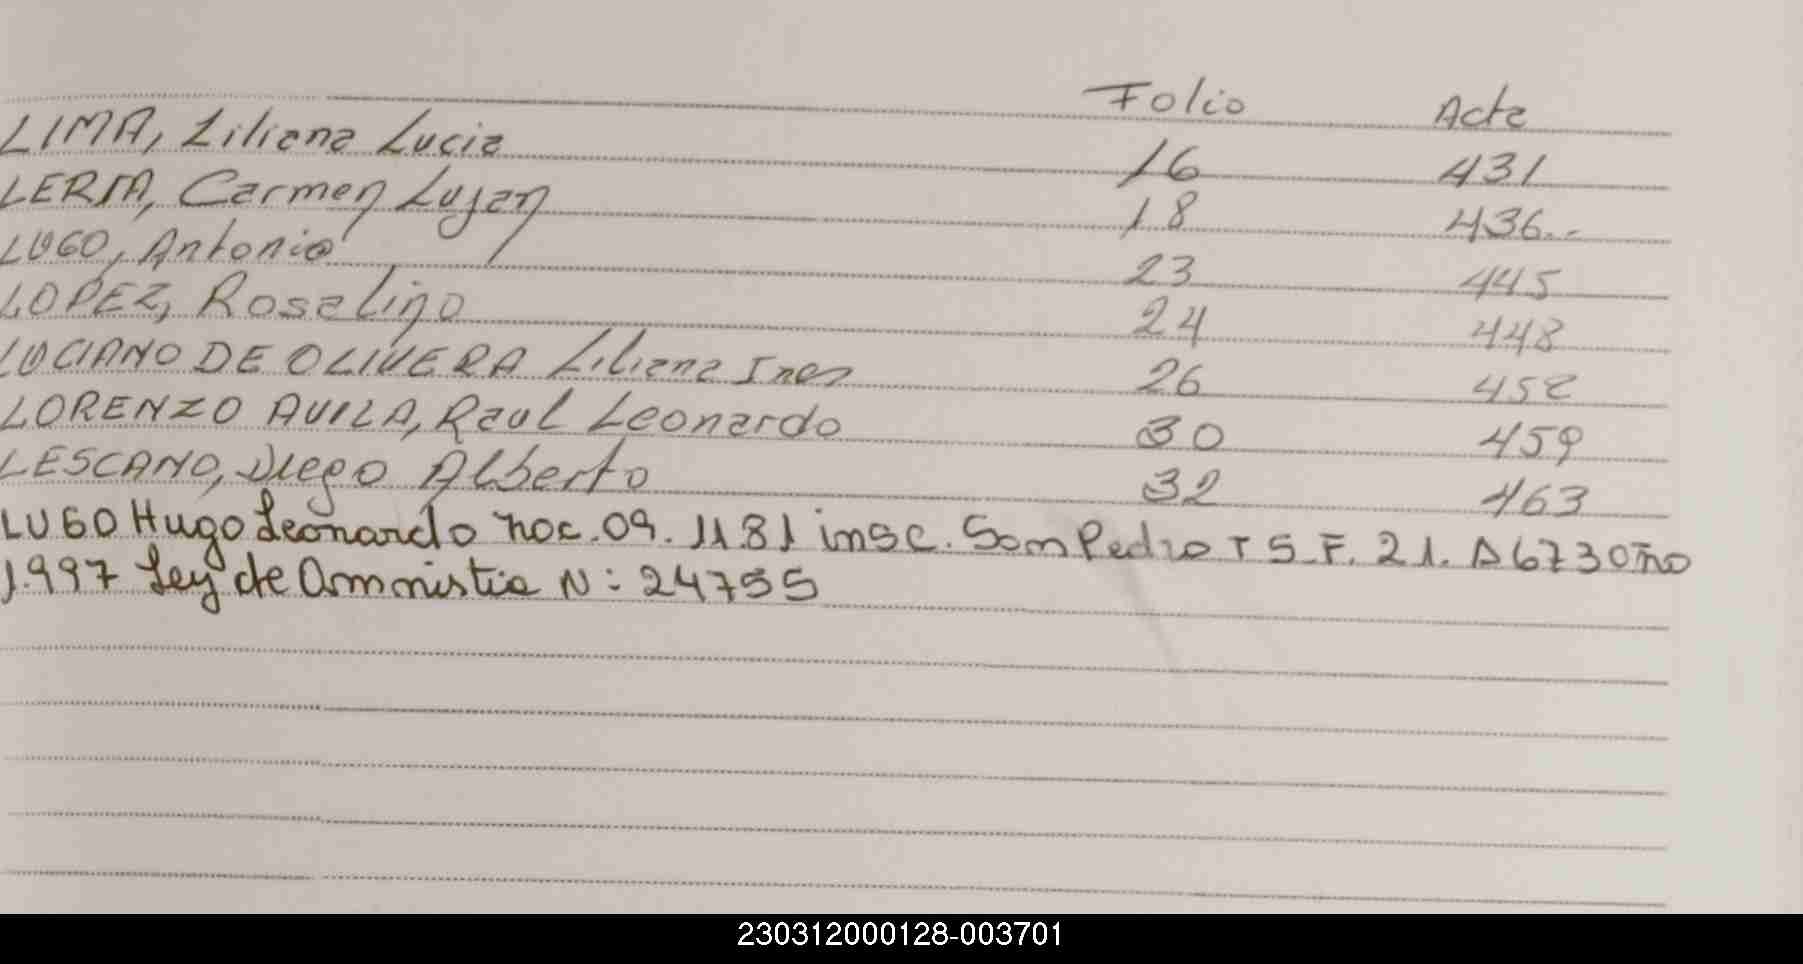 Folio Acta
LIMA, Liliana Lucia 16 431
LERIA, Carmen Lujan 18 436..
LUGO, Antonio 23 445
LOPEZ, Rosalino 24 448
LUCIANO DE OLIVERA Liliana Ines 26 452
LORENZO AVILA, Raul Leonardo 30 459
LESCANO, Diego Alberto 32 463
LUGO Hugo Leonardo nac. 09. 11 81 insc. San Pedro T 5 F. 21. A 673 año
1.997 Ley de Amnistia N: 24755
230312000128-003701